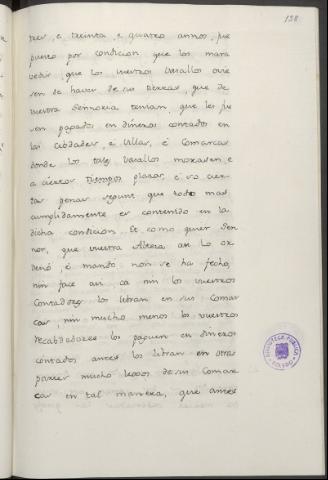 128
tres, e treinta, e quatro annos, fue
puesto por condicion que los mara
vedis, que los vuestros Vasallos ovie
sen de haver de sus tierras, que de
vuestra Sennoria tenian, que les fu
en pagados en dineros contados en
las Cibdades, e Villas, é Comarcas
donde los tales Vasallos morasen, e
a ciertos tiempos, plazos, é so cier
tas penas segunt, que todo mas
cumplidamente es contenido en la
dicha condicion Et como quier Sen
nor, que vuestra Alteza asi lo or
denó, é mandó non se ha fecho,
nin face asi, ca nin los vuestros
Contadores los libran en sus Comar
cas, nin mucho menos los vuestros
Recabdadores los paguen en dineros
contados antes los libran en otras
partes mucho lexos de sus Comar
cas en tal manera, que antes
BIBLIOTECA PUBLICA
TOLEDO